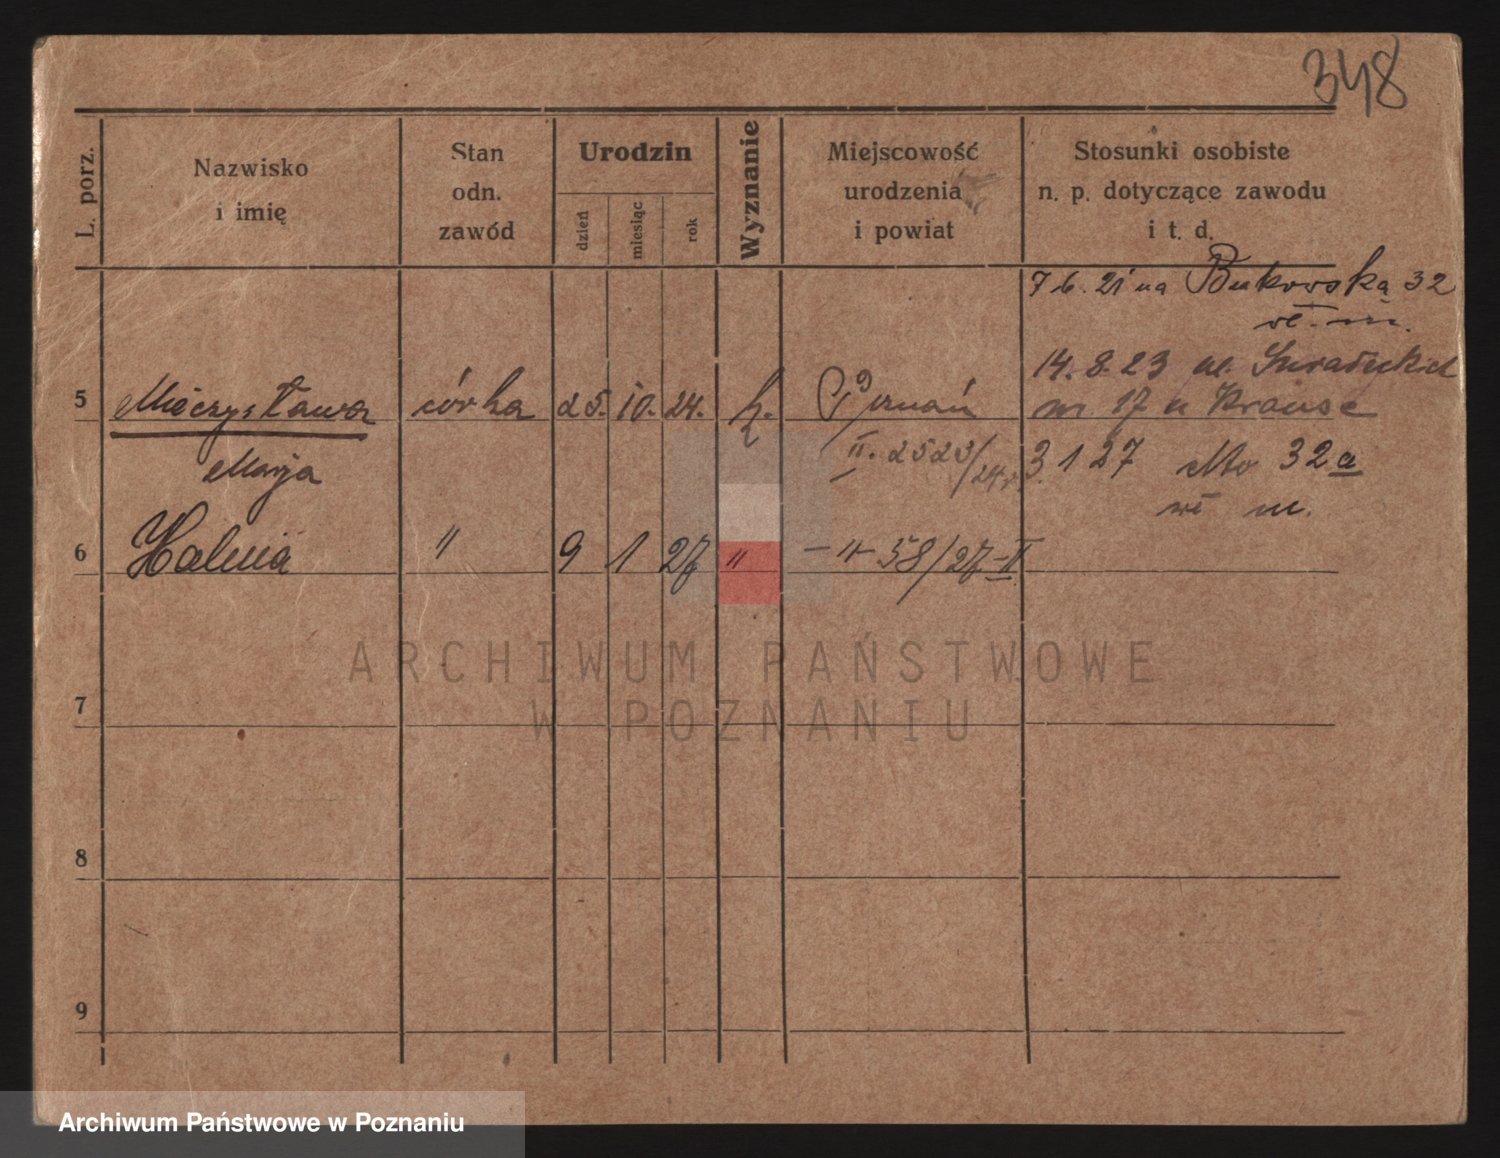 348
L. porz.
Nazwisko
i imię
Stan
odn.
zawód
Urodzin
dzień
miesiąc
rok
Wyznanie
Miejscowość
urodzenia
i powiat
Stosunki osobiste
n. p. dotyczące zawodu
i t. d.
7 6. 21 na Bukowska 32
wł. m.
14. 8. 23 ul.
nr 17 u Krause
5 Mieczysława córka 25. 10. 24. k. Poznań
Marja
II. 2523/24 r.
3. 1 27 32a
wł m.
6 Halina " 9 1 27 " - " - 58/27 - II
7
8
9
ARCHIWUM PAŃSTWOWE
W POZNANIU
Archiwum Państwowe w Poznaniu